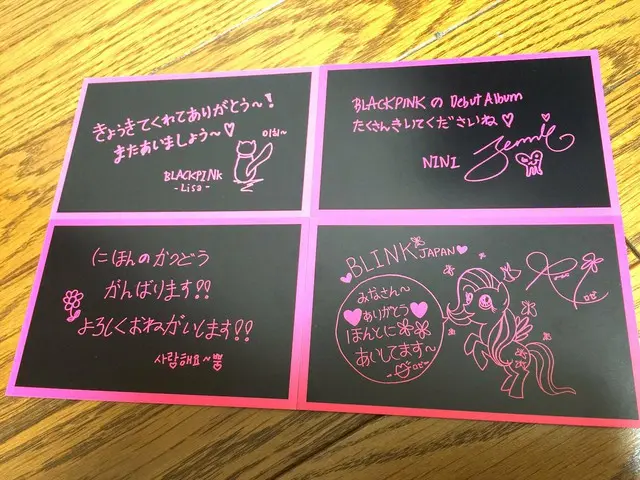 きょうきてくれてありがとう〜!
またあいましょう〜♡
BLACKPINK
-Lisa-
BLACKPINKの Debut Album
たくさんきいてくださいね♡
NINI
Jennie
にほんのかつどう
がんばります!!
よろしくおねがいします!!
사랑해요~
BLINK
JAPAN
みなさん〜
ありがとう
ほんとに
あいしてます〜
로제